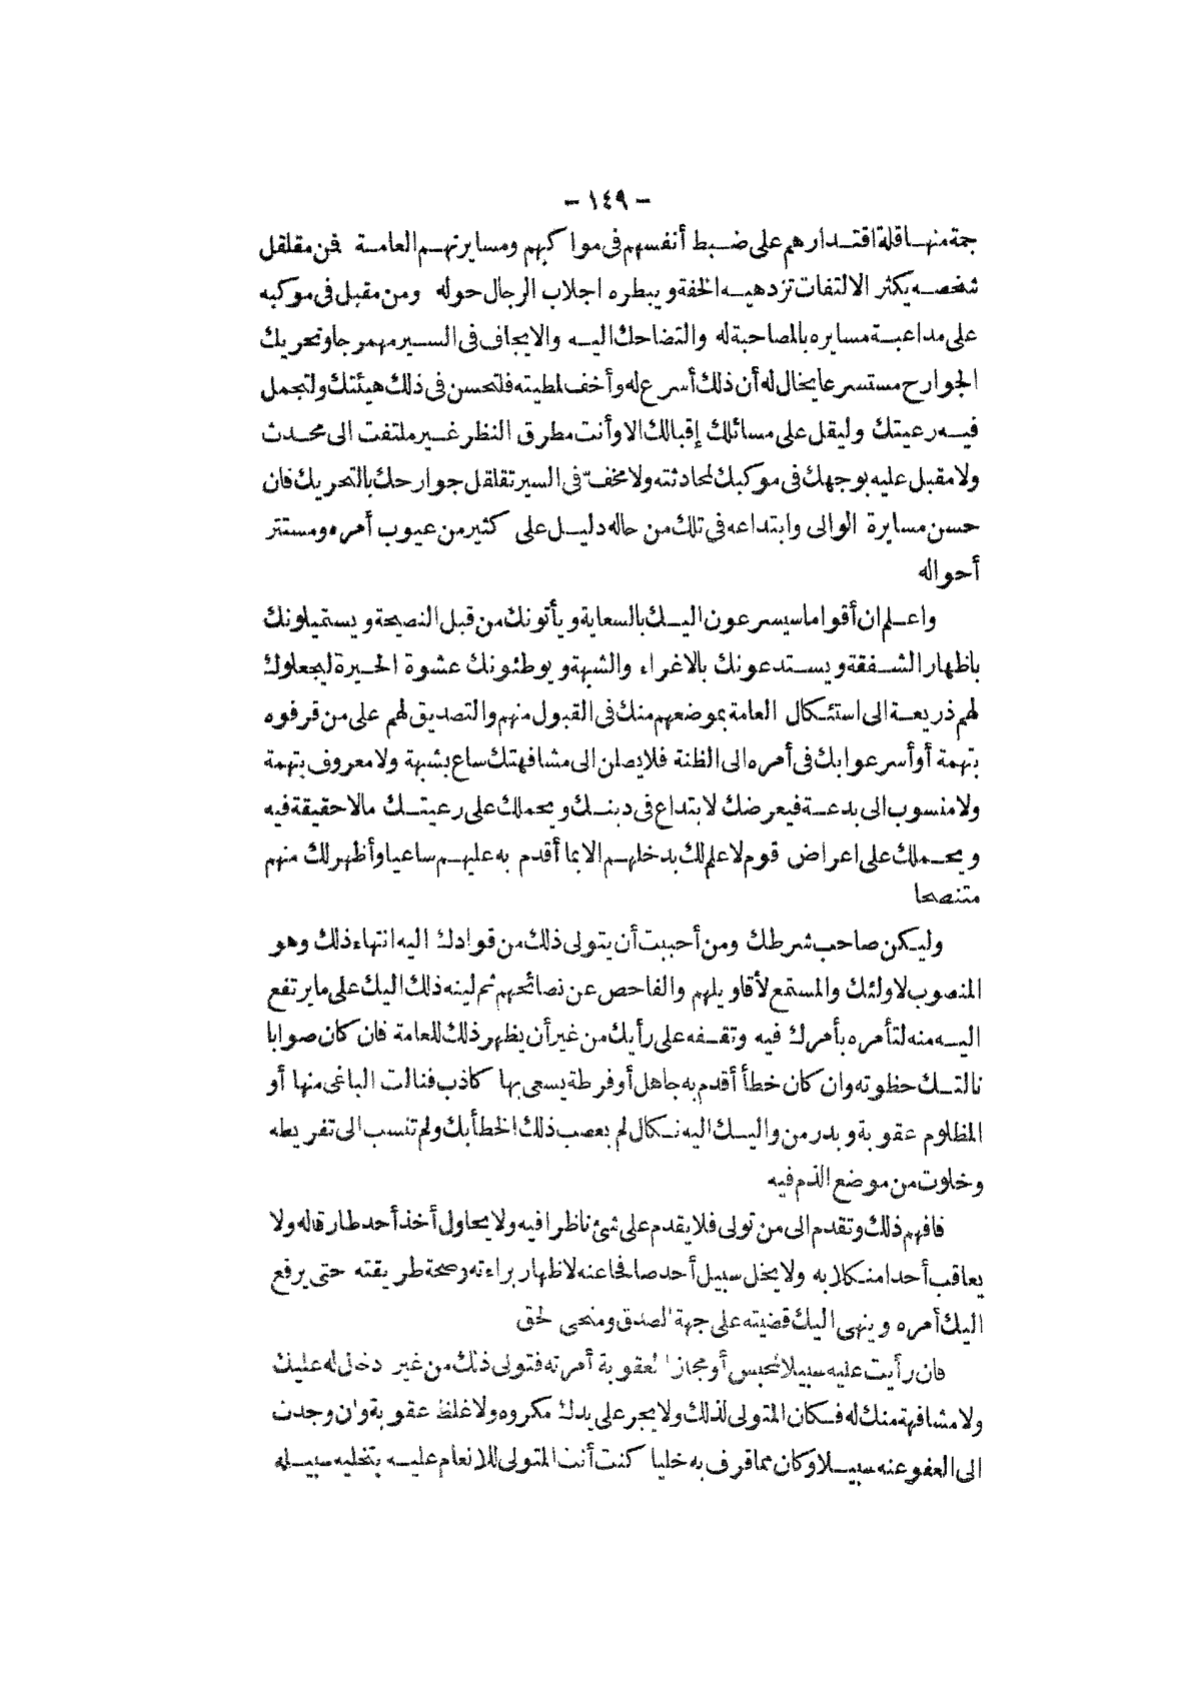 - ١٤٩ -
جمة منها قلة اقتدارهم على ضبط أنفسهم فى مواكبهم ومسايرتهم العامة فن مقلقل
شخصه يكثر الالتفات تزدهيه الخفة ويبطره اجلاب الرجال حوله ومن مقبل فى موكبه
على مداعبة مسايره بالمصاحبة له والتضاحك اليه والايجاف فى السير مهمرجا وتحريك
الجوارح مستسرعا يخال له أن ذلك أسرع له وأخف لمطيته فلتحسن فى ذلك هيئتك ولتجمل
فيه رعيتك وليقل على مسائلك إقبالك الا وأنت مطرق النظر غير ملتفت الى محدث
ولا مقبل عليه بوجهك فى موكبك لمحادثته ولا مخفّ فى السير تقلقل جوارحك بالتحريك فان
حسن مسايرة الوالى وابتداعه فى تلك من حاله دليل على كثير من عيوب أمره ومستتر
أحواله
واعلم ان أقواما سيسرعون اليك بالسعاية ويأتونك من قبل النصيحة ويستميلونك
باظهار الشفقة ويستدعونك بالاغراء والشبهة ويوطئونك عشوة الحيرة ليجعلوك
لهم ذريعة الى استئكال العامة بموضعهم منك فى القبول منهم والتصديق لهم على من قرفوه
بتهمة أو أسرعوا بك فى أمره الى الظنة فلا يصلن الى مشافهتك ساع بشبهة ولا معروف بتهمة
ولا منسوب الى بدعة فيعرضك لابتداع فى دينك ويحملك على رعيتك مالا حقيقة فيه
ويحملك على اعراض قوم لا علم لك بدخلهم الا بما أقدم به عليهم ساعيا وأظهر لك منهم
متنصحا
وليكن صاحب شرطك ومن أحببت أن يتولى ذلك من قوادك اليه انتهاء ذلك وهو
المنصوب لاولئك والمستمع لأقاويلهم والفاحص عن نصائحهم ثم لينه ذلك اليك على ما يرتفع
اليه منه لتأمره بأمرك فيه وتقفه على رأيك من غير أن يظهر ذلك للعامة فان كان صوابا
نالتك حظوته وان كان خطأ أقدم به جاهل أو فرطة يسعى بها كاذب فنالت الباغى منها أو
المظلوم عقوبة وبدر من واليك اليه نكال لم يعصب ذلك الخطأ بك ولم تنسب الى تفريطه
وخلوت من موضع الذم فيه
فافهم ذلك وتقدم الى من تولى فلا يقدم على شئ ناظرا فيه ولا يحاول أخذ أحد طارقا له ولا
يعاقب أحدا منكلا به ولا يخل سبيل أحد صافحا عنه لاظهار براءته وصحة طريقته حتى يرفع
اليك أمره وينهى اليك قضيته على جهة الصدق ومنحى لحق
فان رأيت عليه سبيلا لحبس أو مجازا لعقوبة أمرته فتولى ذلك من غير دخل له عليك
ولا مشافهة منك له فكان المتولى لذلك ولا يجر على يدك مكروه ولا غلظ عقوبة وان وجدت
الى العفو عنه سبيلا وكان مما قرف به خليا كنت أنت المتولى للانعام عليه بتخليه سبيله